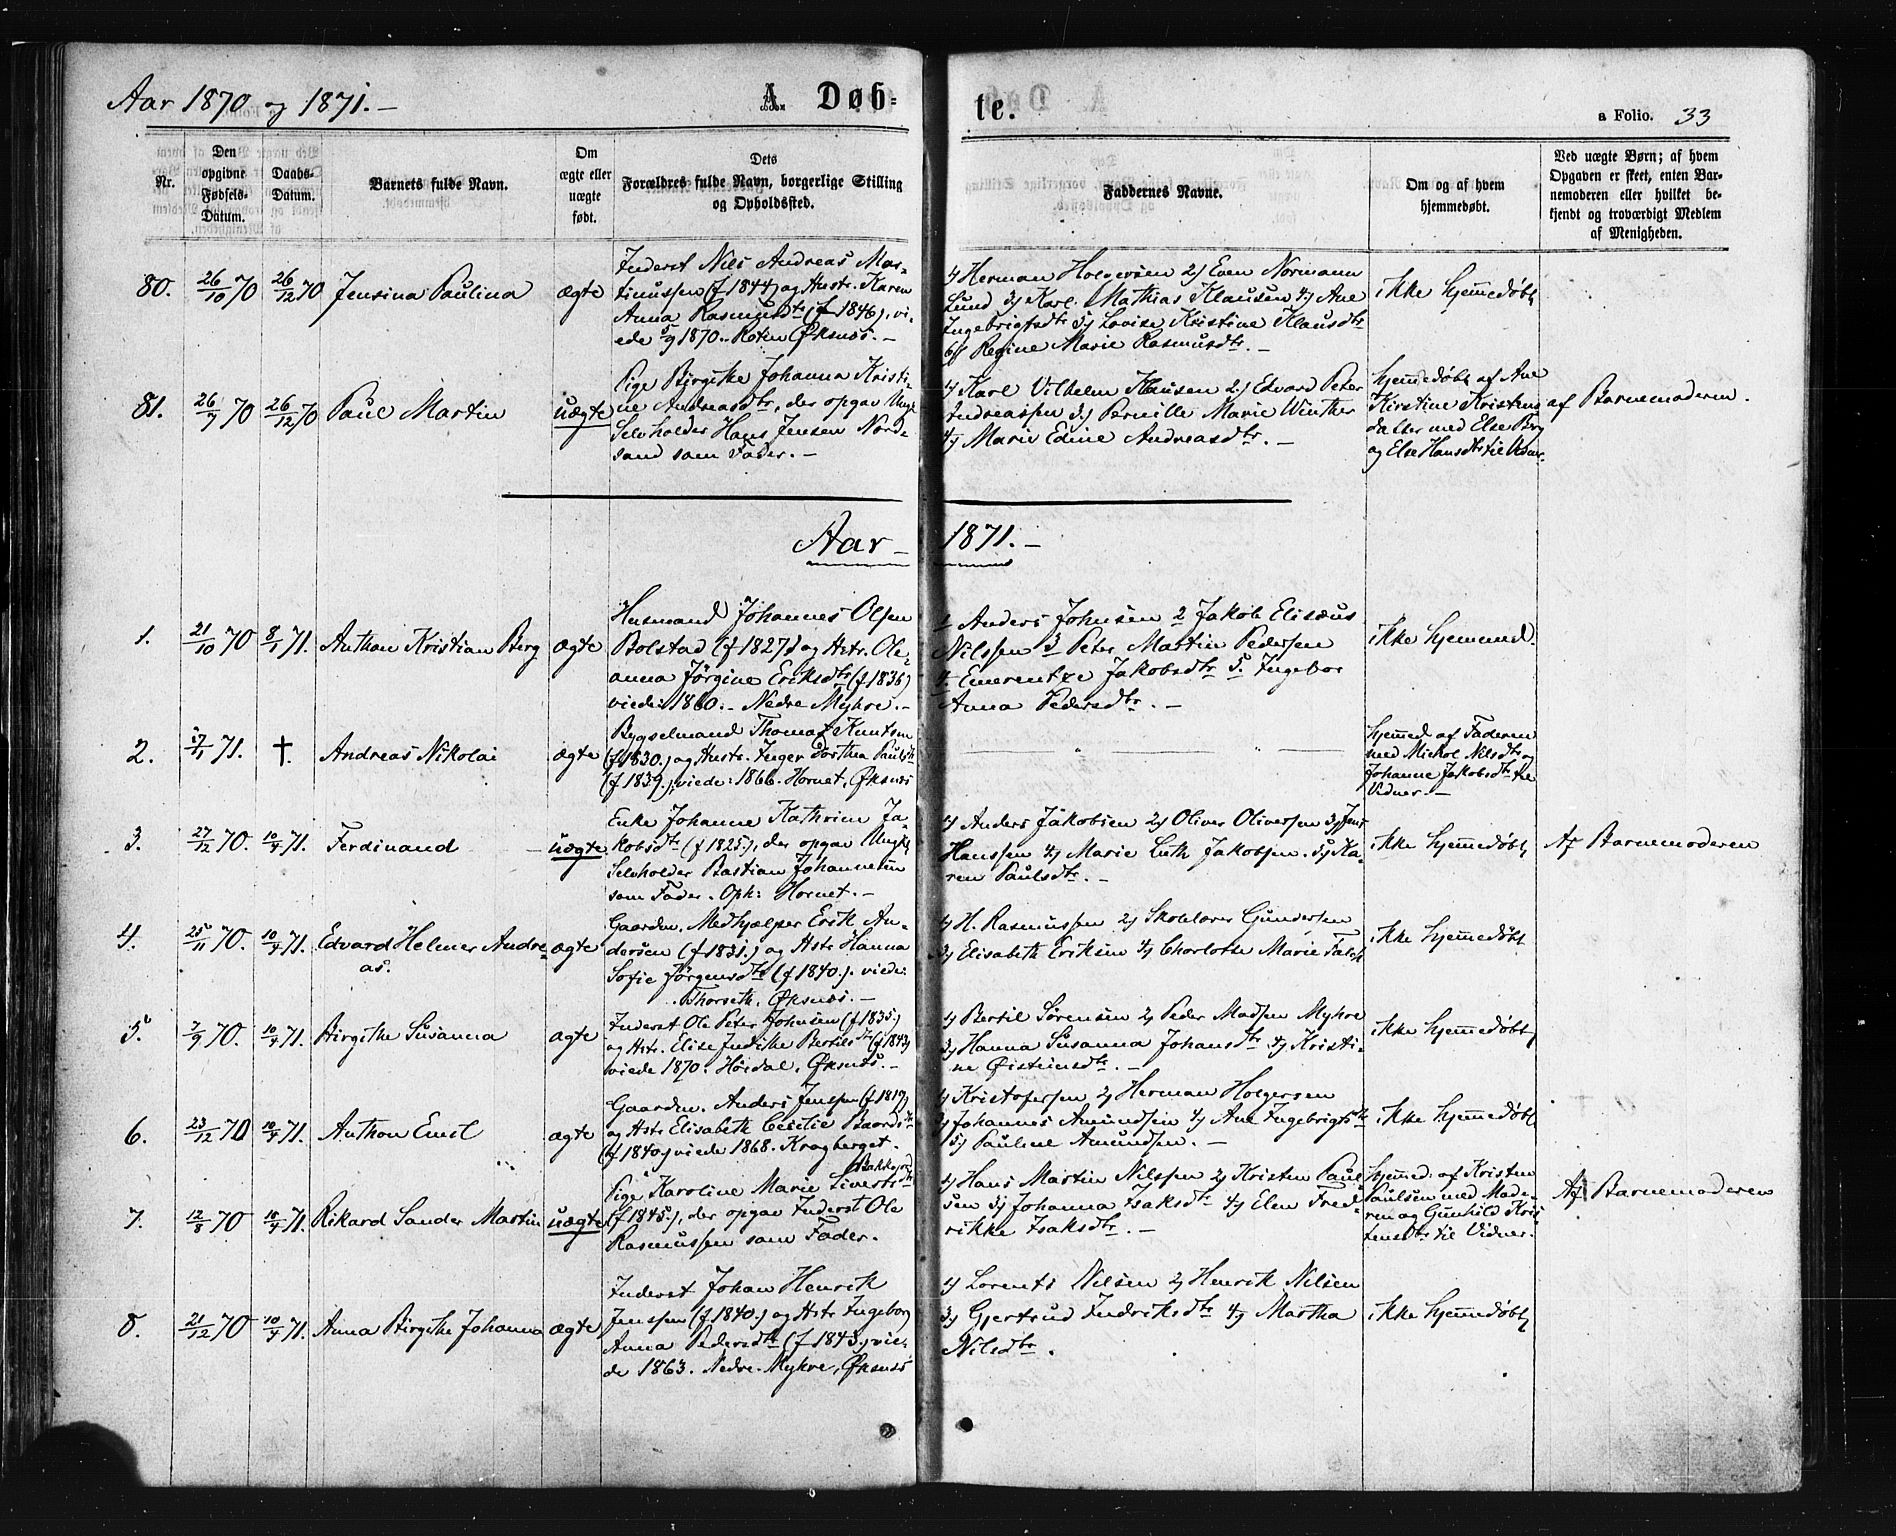 Aar 1870 og 1871. —
A. Døb-
te.
a Folio. 33
Nr.
Den
opgivne
Fødsels-
Datum.
Daabs-
Datum.
Barnets fulde Navn.
Om
ægte eller
uægte
født.
Dets
Forældres fulde Navn, borgerlige Stilling
og Opholdssted.
Faddernes Navne.
Om og af hvem
hjemmedøbt.
Ved uægte Børn; af hvem
Opgaven er skeet, enten Bar-
nemoderen eller hvilket be-
kjendt og troværdigt Medlem
af Menigheden.
80.
26/10 70
26/12 70
Jensina Paulina
ægte
Inderst Nils Andreas Mar-
tinussen (f 1844) og Hustr. Karen
Anna Rasmusdtr (f 1846), vi-
ede 5/9 1870. Roten Øksnes. —
1) Herman Holgersen 2) Even Normann
Lund 3) Karl Mathias Klausen 4) Ane
Ingebrigtsdtr 5) Lovise Kristine Klausdtr
6) Regine Marie Rasmusdtr. —
ikke hjemmedøbt
81.
26/9 70
26/12 70
Paul Martin
uægte
Pige Birgithe Johanna Kristi-
ne Andreasdtr, der opgav Ungk
Selvholder Hans Jensen Nord-
sand som Fader. —
1) Karl Vilhelm Klausen 2) Edvard Peter
Andreassen 3) Pernille Marie Winther
4) Marie Edine Andreasdtr. —
hjemmedøbt af Ane
Kirstine Kristens
datter med Else Berg
og Else Hansdtr til Vidner.
af Barnemoderen.
Aar — 1871. —
1.
21/10 70
8/1 71.
Anthon Kristian Berg
ægte
Husmand Johannes Olsen
Bolstad (f 1827) og Hstr. Ole-
anna Jørgine Eriksdtr (f 1836)
viede: 1860. — Nedre Myhre. —
1 Anders Johnsen 2 Jakob Elisæus
Nilssen 3 Peter Martin Pedersen
4. Emerentze Jakobsdtr 5. Ingebor
Anna Pedersdtr. —
ikke hjemmed.
2.
17/1 71.
†.
Andreas Nikolai
ægte
Bygselmand Thomas Knutsen
(f 1830.) og Hustr. Inger Dorthea Paulsdtr
(f 1839.), viede: 1866. Hornet, Øksnes
hjemmed. af Faderen
med Mickol Nilsdtr og
Johanne Jakobsdtr til
Vidner. —
3.
27/12 70.
10/4 71.
Ferdinand
uægte
Enke Johanne Kathrine Ja-
kobsdtr (f 1825.), der opgav Ungk
Selvholder Bastian Johannesen
som Fader. Oph: Hornet. —
1) Anders Jakobsen 2) Oliver Oliversen 3) Jens
Hanssen 4) Marie Luth Jakobsen. 5) Ka-
ren Paulsdtr. —
ikke hjemmedøbt
Af Barnemoderen
4.
25/11 70.
10/4 71.
Edvard Helmer Andre-
as.
ægte
Gaardm. Medhjælper Erik An-
dersen (f 1831.) og Hstr Hanna
Sofie Jørgensdtr (f 1840.). viede:
Thorseth, Øksnes. —
1) H. Rasmussen 2) Skolelærer Gundersen
3) Elisabeth Eriksen 4) Charlotte Marie Falch
ikke hjemmedøbt
5.
7/9 70.
10/4 71.
Birgithe Susanna
ægte
Inderst Ole Peter Johnsen (f 1835.)
og Hstr. Elise Judithe Bertilsdtr (f 1843)
viede 1870. Høidal, Øksnes. —
1) Bertil Sørensen 2) Peder Madsen Myhre
3) Hanna Susanna Johansdtr 4) Kristi-
ne Øisteinsdtr. —
ikke hjemmedøbt
6.
23/12 70
10/4 71.
Anthon Emil
ægte
Gaardm. Anders Jenssen (f 1819)
og Hstr Elisabeth Cecilie Baardsdtr
(f 1840) viede 1868. Kragberget.
1) Kristofersen 2) Herman Holgersen
3) Johannes Amundsen 4) Ane Ingebrigtsdtr
5) Pauline Amundsen. —
ikke hjemmedøbt
7.
12/8 70
10/4 71.
Rikard Sander Martin
uægte
Bakkejord
Pige Karoline Marie Sivertsdtr
(f 1845.), der opgav Inderst Ole
Rasmussen som Fader.
1) Hans Martin Nilssen 2) Kristen Paul-
sen 3) Johanna Isaksdtr 4) Elen Fred-
rikke Isaksdtr. —
hjemmed. af Kristen
Paulsen med Mode-
ren og Gunhild Kris-
tensdtr til Vidner.
Af Barnemoderen
8.
21/12 70
10/4 71.
Anna Birgithe Johanna
ægte
Inderst Johan Henrik
Jenssen (f. 1840.) og Hstr Ingeborg
Anna Pedersdtr (f 1843.) vie-
de 1863. Nedre Myhre, Øksnes
1) Lorents Nilsen 2) Henrik Nilsen
3) Gjertrud Indriksdtr 4) Martha
Nilsdtr.
ikke hjemmedøbt